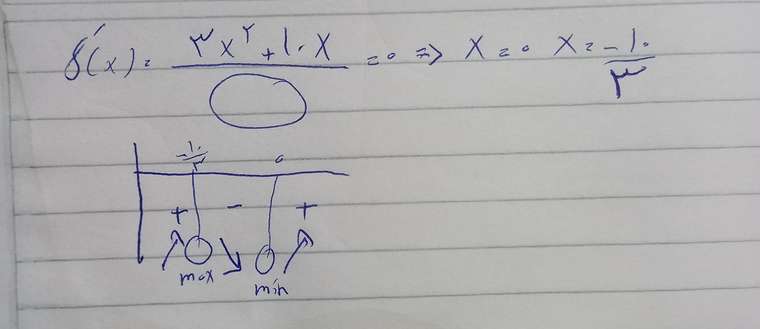 f'(x) = (۳x^۲ + ۱۰x) / ◯ = ۰ ⇒ x = ۰ x = -۱۰/۳
-۱۰/۳ ۰
+ - +
max min